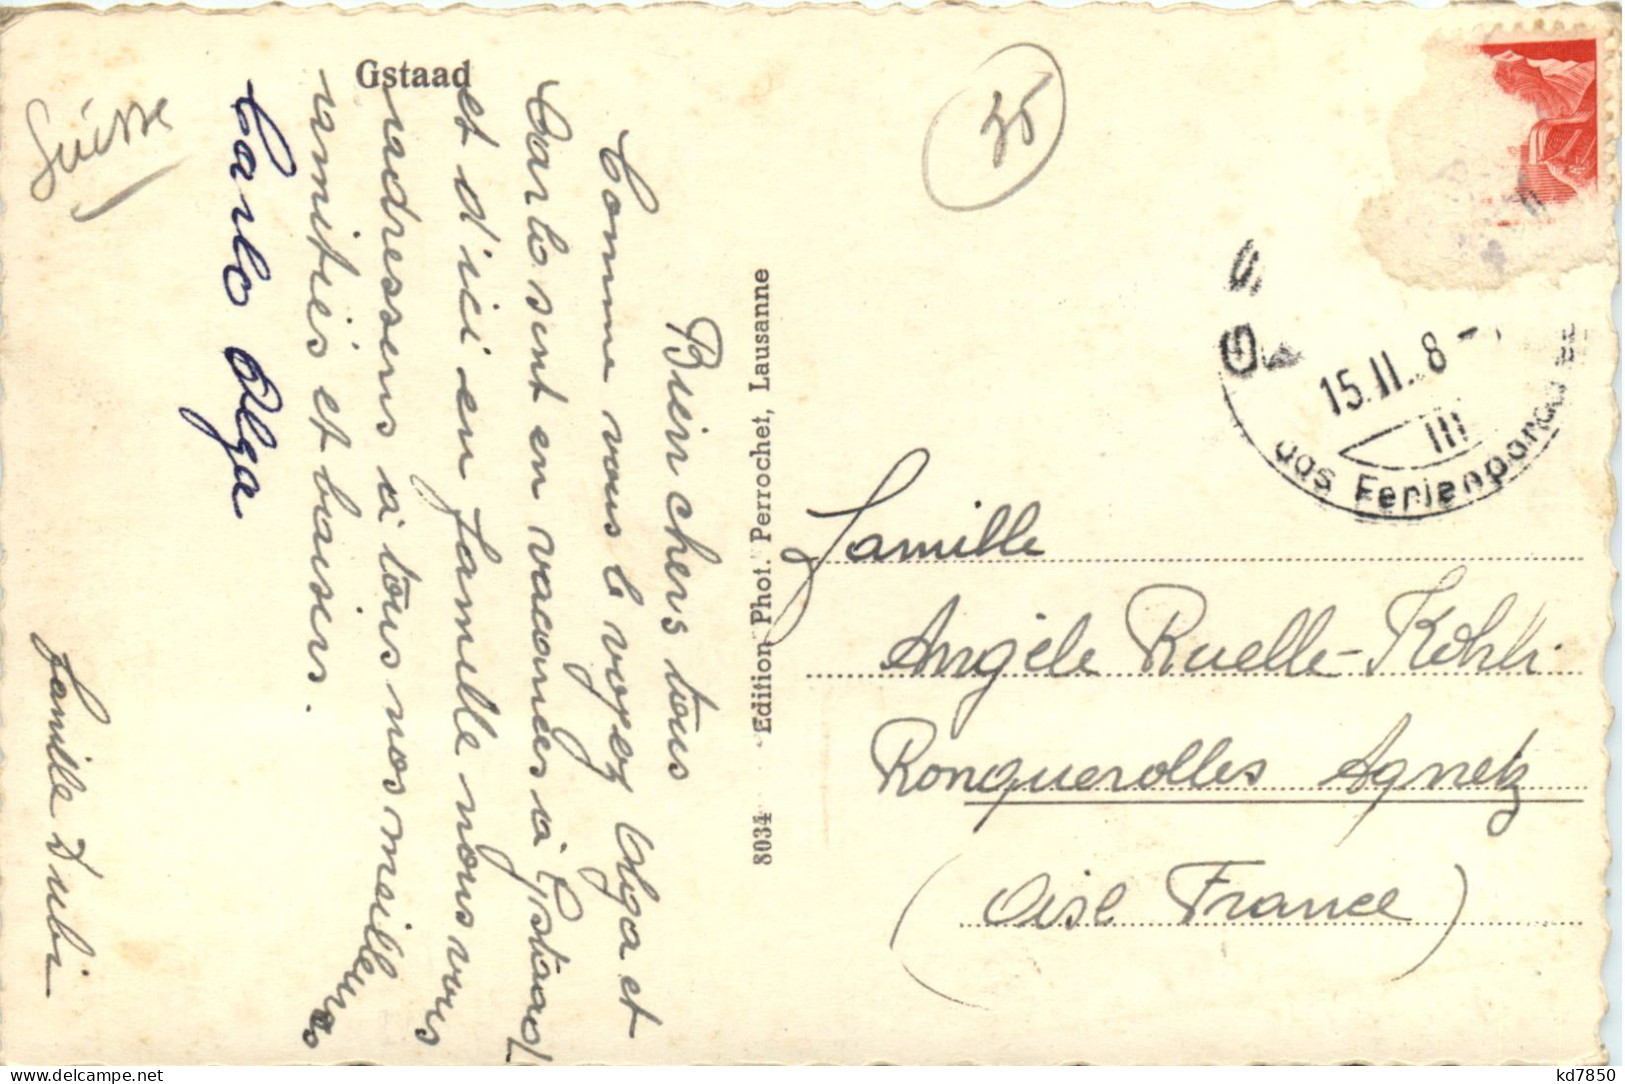 Gstaad
Suisse
Bien chers tous
Comme vous le voyez Olga et
Carlo sont en vacances à Gstaad
et d'ici en famille nous vous
radressons à tous nos meilleures
amitiés et baisers.
Carlo Olga
famille Dubi
8034 - Edition Phot. Perrochet, Lausanne
35
15.II. 8
III
das Ferienpara
Famille
Angèle Ruelle-Kohli
Ronquerolles Agnetz
(Oise France)
kd7850